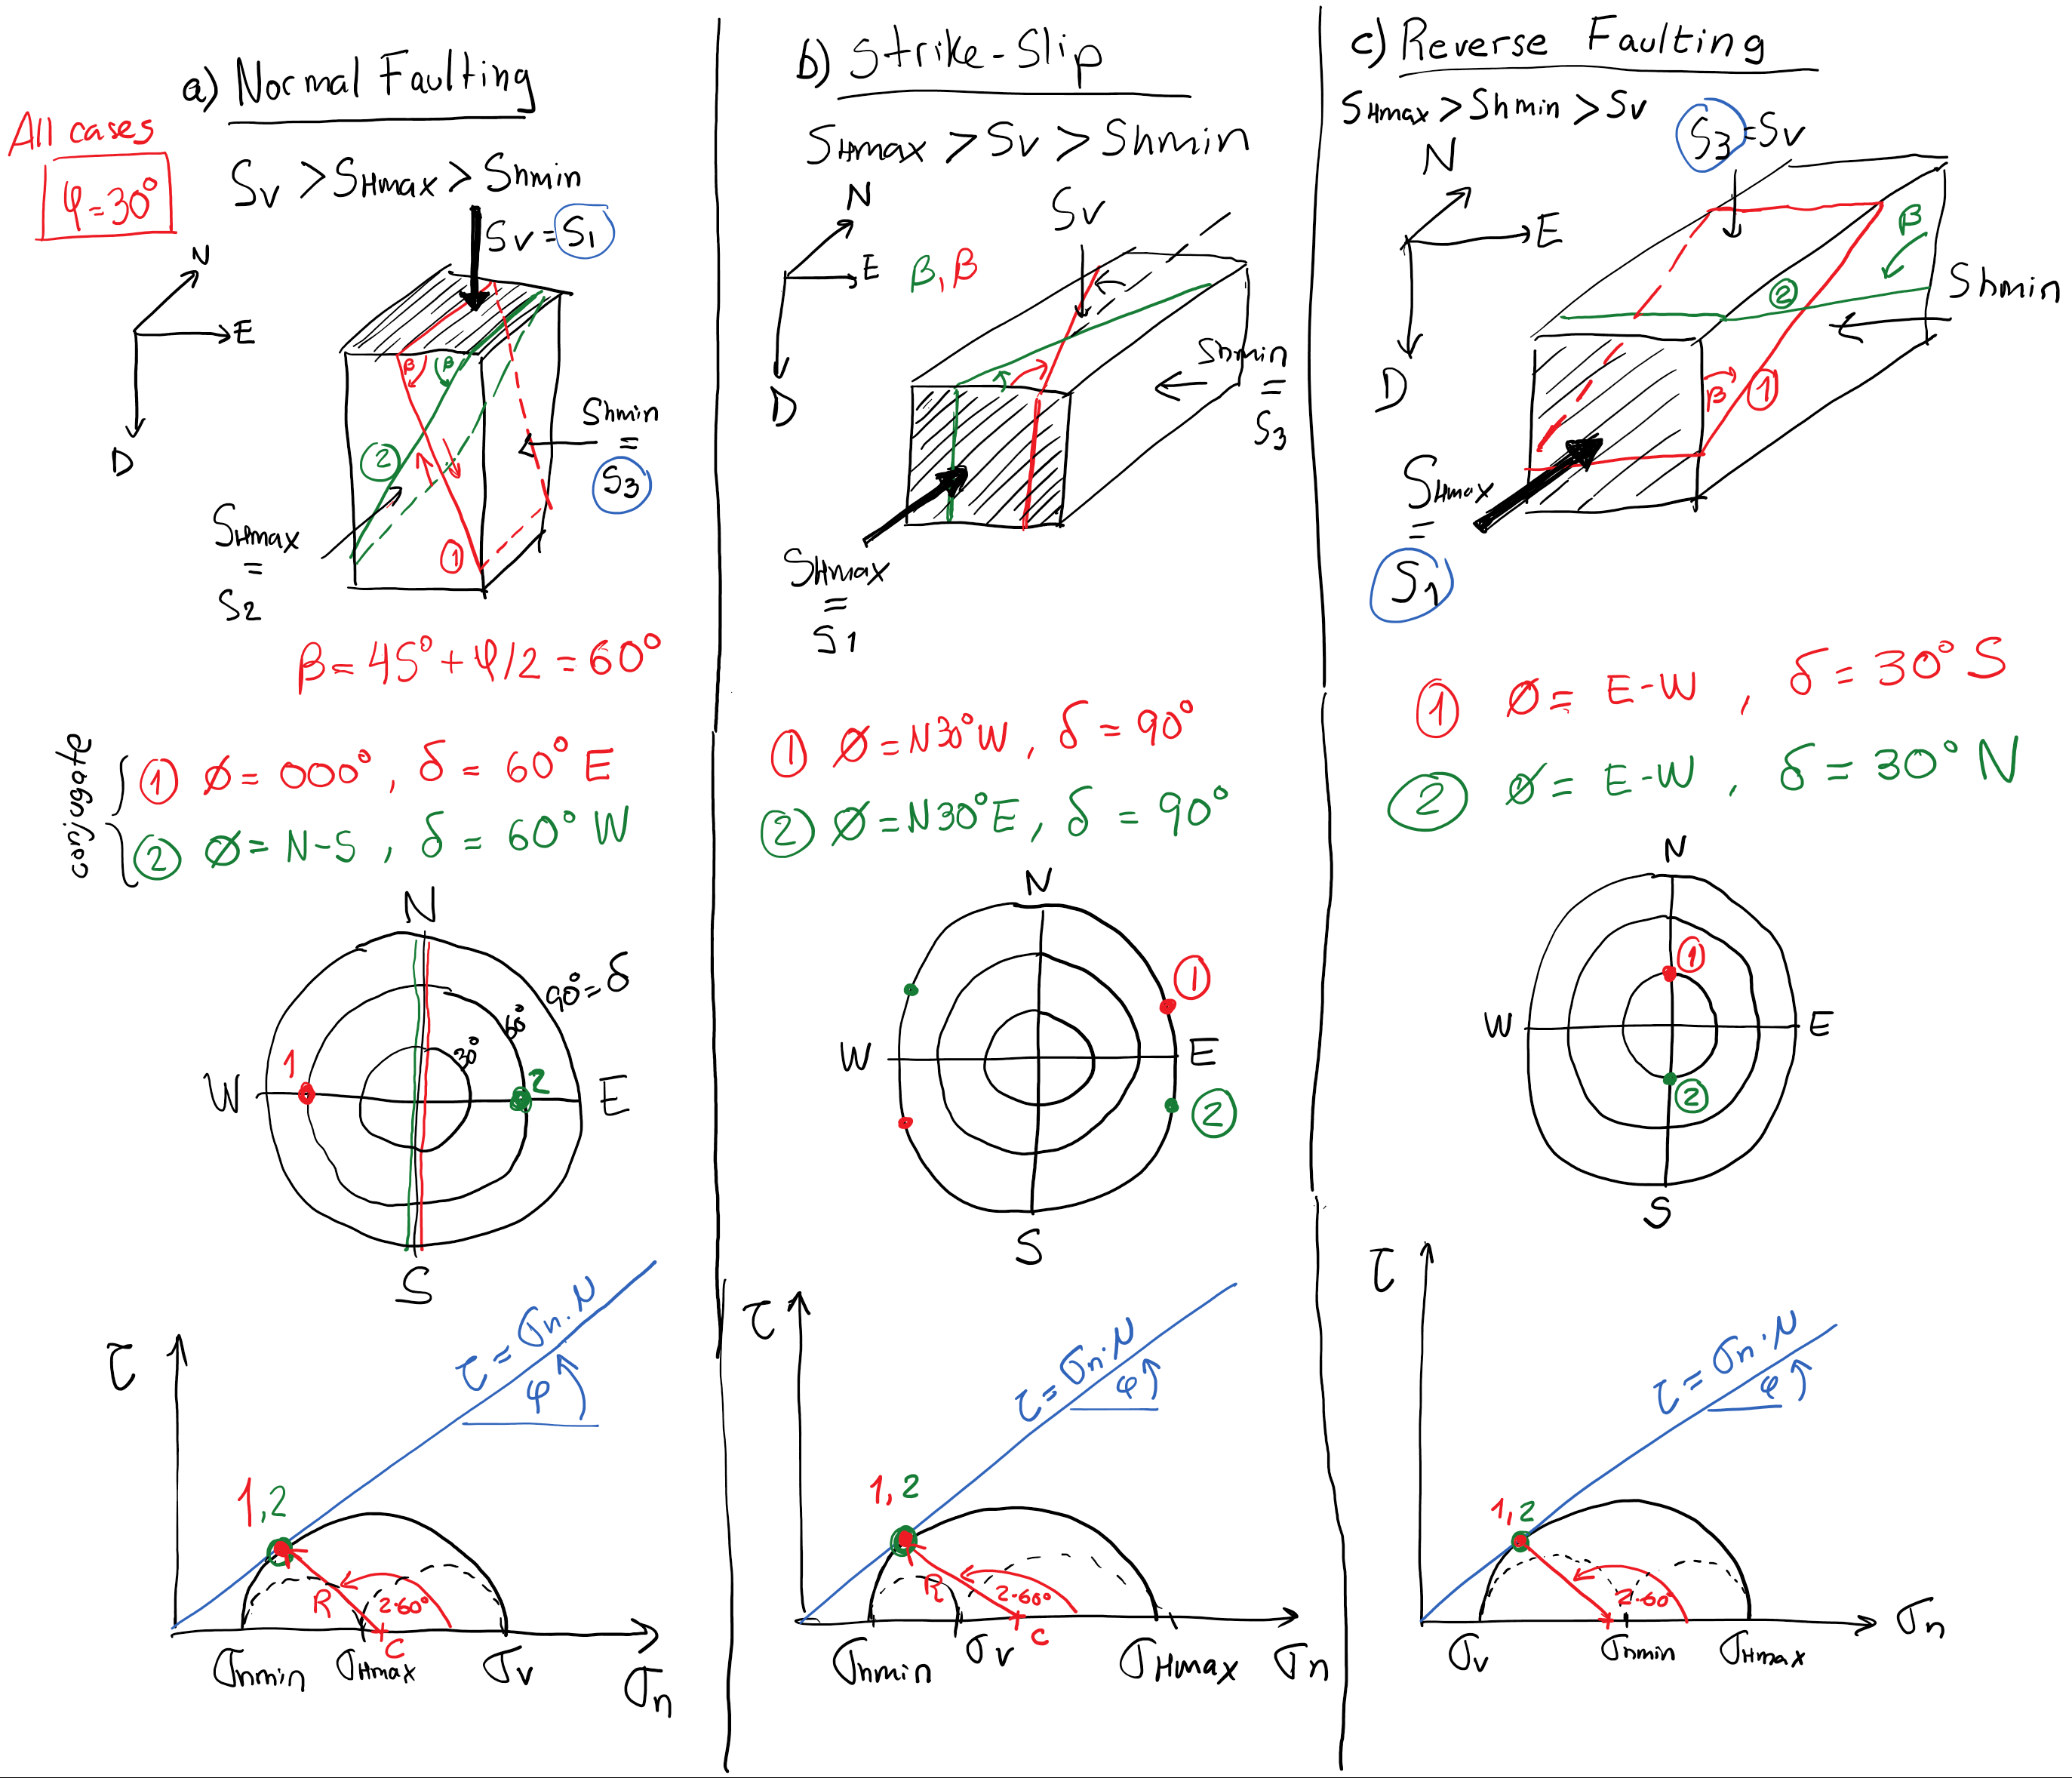 All cases
φ=30°
a) Normal Faulting
Sv > SHmax > Shmin
Sv = S1
N
E
D
β
β
2
1
Shmin
=
S3
SHmax
=
S2
β = 45° + φ/2 = 60°
conjugate
1 ø = 000° , δ = 60° E
2 ø = N-S , δ = 60° W
N
90° = δ
60°
30°
1
2
W
E
S
τ
τ = σn.μ
φ
1,2
R
2·60°
C
σhmin
σHmax
σv
σn
b) Strike-Slip
SHmax > Sv > Shmin
N
E
D
β, β
Sv
Shmin
=
S3
SHmax
=
S1
1 ø = N30°W , δ = 90°
2 ø = N30°E , δ = 90°
N
1
W
E
2
S
τ
τ = σn.μ
φ
1, 2
R
2·60°
C
σhmin
σv
σHmax
σn
c) Reverse Faulting
SHmax > Shmin > Sv
S3 = Sv
N
E
D
β
2
Shmin
β
1
SHmax
=
S1
1 ø = E-W , δ = 30° S
2 ø = E-W , δ = 30° N
N
1
W
E
2
S
τ
τ = σn.μ
φ
1,2
2·60
σv
σhmin
σHmax
σn